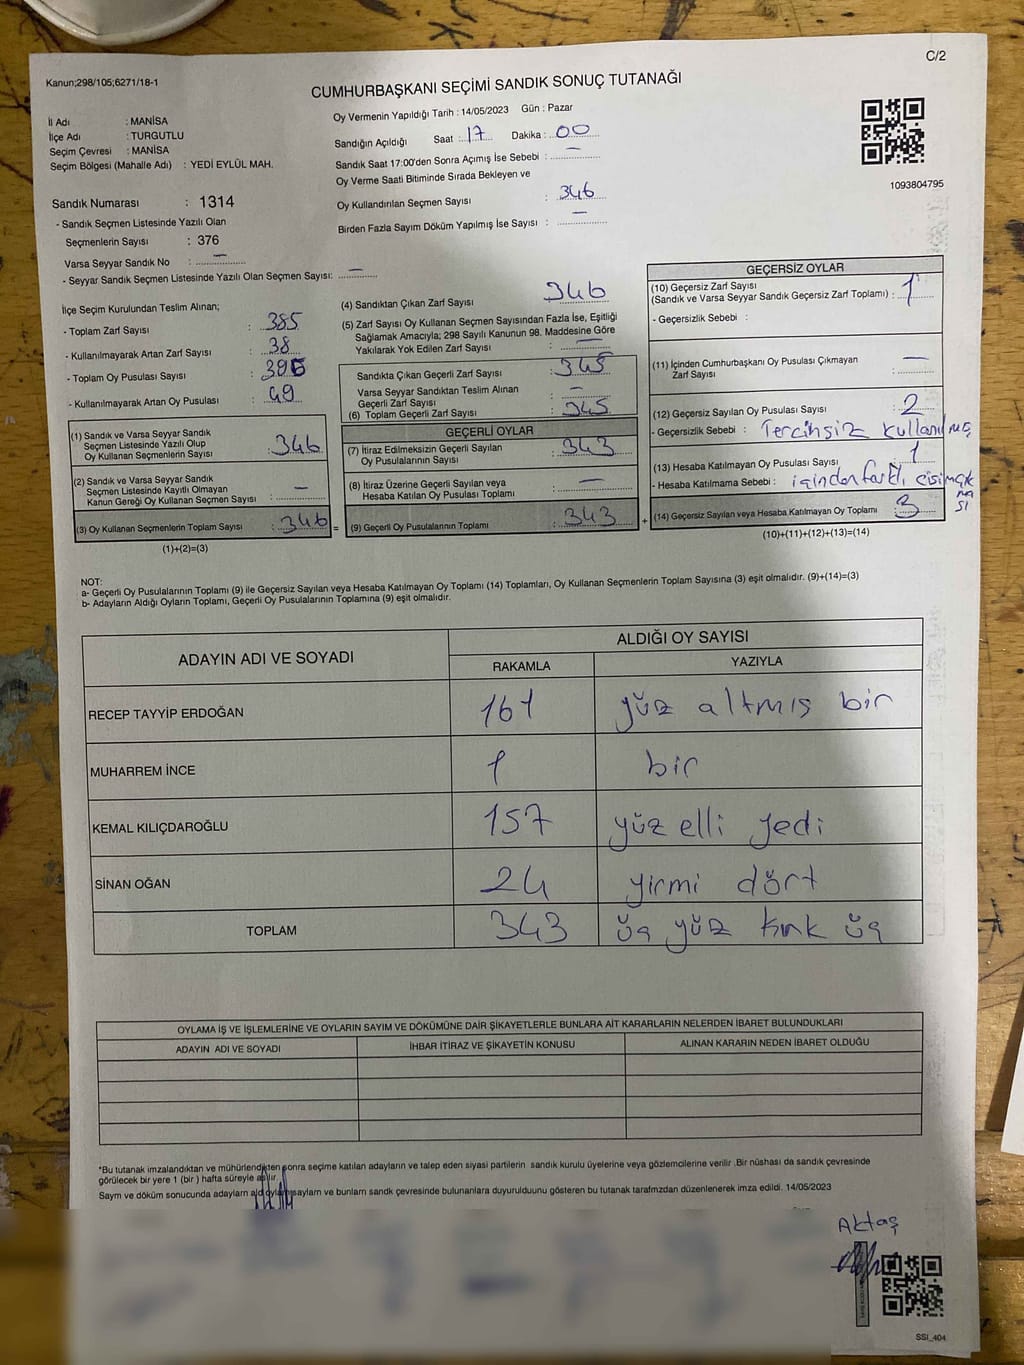 C/2
Kanun;298/105;6271/18-1
CUMHURBAŞKANI SEÇİMİ SANDIK SONUÇ TUTANAĞI
İl Adı : MANİSA
İlçe Adı : TURGUTLU
Seçim Çevresi : MANİSA
Seçim Bölgesi (Mahalle Adı) : YEDİ EYLÜL MAH.
Sandık Numarası : 1314
- Sandık Seçmen Listesinde Yazılı Olan
Seçmenlerin Sayısı : 376
Varsa Seyyar Sandık No : –
- Seyyar Sandık Seçmen Listesinde Yazılı Olan Seçmen Sayısı: –
Oy Vermenin Yapıldığı Tarih : 14/05/2023 Gün : Pazar
Sandığın Açıldığı Saat : 17 Dakika : 00
Sandık Saat 17:00'den Sonra Açımış İse Sebebi : –
Oy Verme Saati Bitiminde Sırada Bekleyen ve
Oy Kullandırılan Seçmen Sayısı : 346
Birden Fazla Sayım Döküm Yapılmış İse Sayısı : –
1093804795
İlçe Seçim Kurulundan Teslim Alınan;
- Toplam Zarf Sayısı : 385
- Kullanılmayarak Artan Zarf Sayısı : 38
- Toplam Oy Pusulası Sayısı :
- Kullanılmayarak Artan Oy Pusulası : 49
(1) Sandık ve Varsa Seyyar Sandık
Seçmen Listesinde Yazılı Olup
Oy Kullanan Seçmenlerin Sayısı : 346
(2) Sandık ve Varsa Seyyar Sandık
Seçmen Listesinde Kayıtlı Olmayan
Kanun Gereği Oy Kullanan Seçmen Sayısı : –
(3) Oy Kullanan Seçmenlerin Toplam Sayısı : 346 =
(1)+(2)=(3)
(4) Sandıktan Çıkan Zarf Sayısı 346
(5) Zarf Sayısı Oy Kullanan Seçmen Sayısından Fazla İse, Eşitliği
Sağlamak Amacıyla; 298 Sayılı Kanunun 98. Maddesine Göre
Yakılarak Yok Edilen Zarf Sayısı : –
Sandıkta Çıkan Geçerli Zarf Sayısı : 345
Varsa Seyyar Sandıktan Teslim Alınan
Geçerli Zarf Sayısı : –
(6) Toplam Geçerli Zarf Sayısı : 345
GEÇERLİ OYLAR
(7) İtiraz Edilmeksizin Geçerli Sayılan
Oy Pusulalarının Sayısı : 343
(8) İtiraz Üzerine Geçerli Sayılan veya
Hesaba Katılan Oy Pusulası Toplamı : –
(9) Geçerli Oy Pusulalarının Toplamı : 343 +
GEÇERSİZ OYLAR
(10) Geçersiz Zarf Sayısı
(Sandık ve Varsa Seyyar Sandık Geçersiz Zarf Toplamı) : 1
- Geçersizlik Sebebi :
(11) İçinden Cumhurbaşkanı Oy Pusulası Çıkmayan
Zarf Sayısı : –
(12) Geçersiz Sayılan Oy Pusulası Sayısı : 2
- Geçersizlik Sebebi : Tercihsiz kullanılmış
(13) Hesaba Katılmayan Oy Pusulası Sayısı : 1
- Hesaba Katılmama Sebebi : içinden farklı cisim çıkması
(14) Geçersiz Sayılan veya Hesaba Katılmayan Oy Toplamı : 3
(10)+(11)+(12)+(13)=(14)
NOT:
a- Geçerli Oy Pusulalarının Toplamı (9) ile Geçersiz Sayılan veya Hesaba Katılmayan Oy Toplamı (14) Toplamları, Oy Kullanan Seçmenlerin Toplam Sayısına (3) eşit olmalıdır. (9)+(14)=(3)
b- Adayların Aldığı Oyların Toplamı, Geçerli Oy Pusulalarının Toplamına (9) eşit olmalıdır.
ADAYIN ADI VE SOYADI ALDIĞI OY SAYISI
RAKAMLA YAZIYLA
RECEP TAYYİP ERDOĞAN 161 yüz altmış bir
MUHARREM İNCE 1 bir
KEMAL KILIÇDAROĞLU 157 yüz elli yedi
SİNAN OĞAN 24 yirmi dört
TOPLAM 343 üç yüz kırk üç
OYLAMA İŞ VE İŞLEMLERİNE VE OYLARIN SAYIM VE DÖKÜMÜNE DAİR ŞİKAYETLERLE BUNLARA AİT KARARLARIN NELERDEN İBARET BULUNDUKLARI
ADAYIN ADI VE SOYADI İHBAR İTİRAZ VE ŞİKAYETİN KONUSU ALINAN KARARIN NEDEN İBARET OLDUĞU
*Bu tutanak imzalandıktan ve mühürlendikten sonra seçime katılan adayların ve talep eden siyasi partilerin sandık kurulu üyelerine veya gözlemcilerine verilir .Bir nüshası da sandık çevresinde
görülecek bir yere 1 (bir ) hafta süreyle asılır.
Sayım ve döküm sonucunda adayların aldığı oyların sayıları ve bunların sandık çevresinde bulunanlara duyurulduğunu gösteren bu tutanak tarafımızdan düzenlenerek imza edildi. 14/05/2023
Aktaş
SSI_404